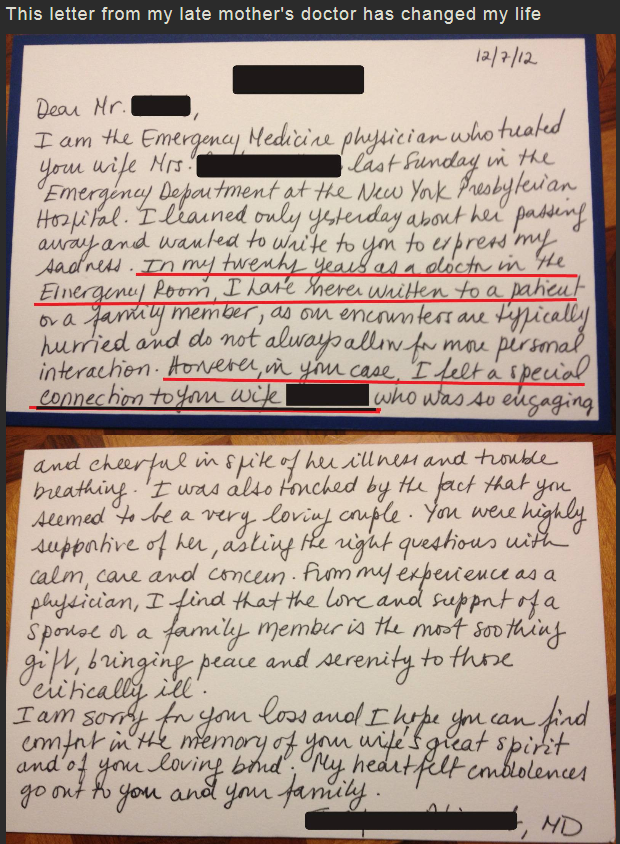 This letter from my late mother's doctor has changed my life
12/7/12
Dear Mr.
I am the Emergency Medicine physician who treated
your wife Mrs. last Sunday in the
Emergency Department at the New York Presbyterian
Hospital. I learned only yesterday about her passing
away and wanted to write to you to express my
sadness. In my twenty years as a doctor in the
Emergency Room, I have never written to a patient
or a family member, as our encounters are typically
hurried and do not always allow for more personal
interaction. However, in your case, I felt a special
connection to your wife who was so engaging
and cheerful in spite of her illness and trouble
breathing. I was also touched by the fact that you
seemed to be a very loving couple. You were highly
supportive of her, asking the right questions with
calm, care and concern. From my experience as a
physician, I find that the love and support of a
spouse or a family member is the most soothing
gift, bringing peace and serenity to those
critically ill.
I am sorry for your loss and I hope you can find
comfort in the memory of your wife's great spirit
and of your loving bond. My heartfelt condolences
go out to you and your family.
, MD